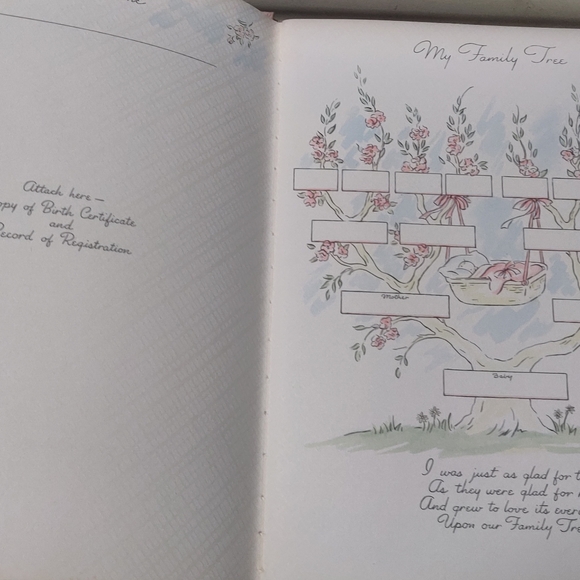 Attach here —
of Birth Certificate
and
Record of Registration
My Family Tree
Mother
Baby
I was just as glad for
As they were glad for
And grew to love its
Upon our Family